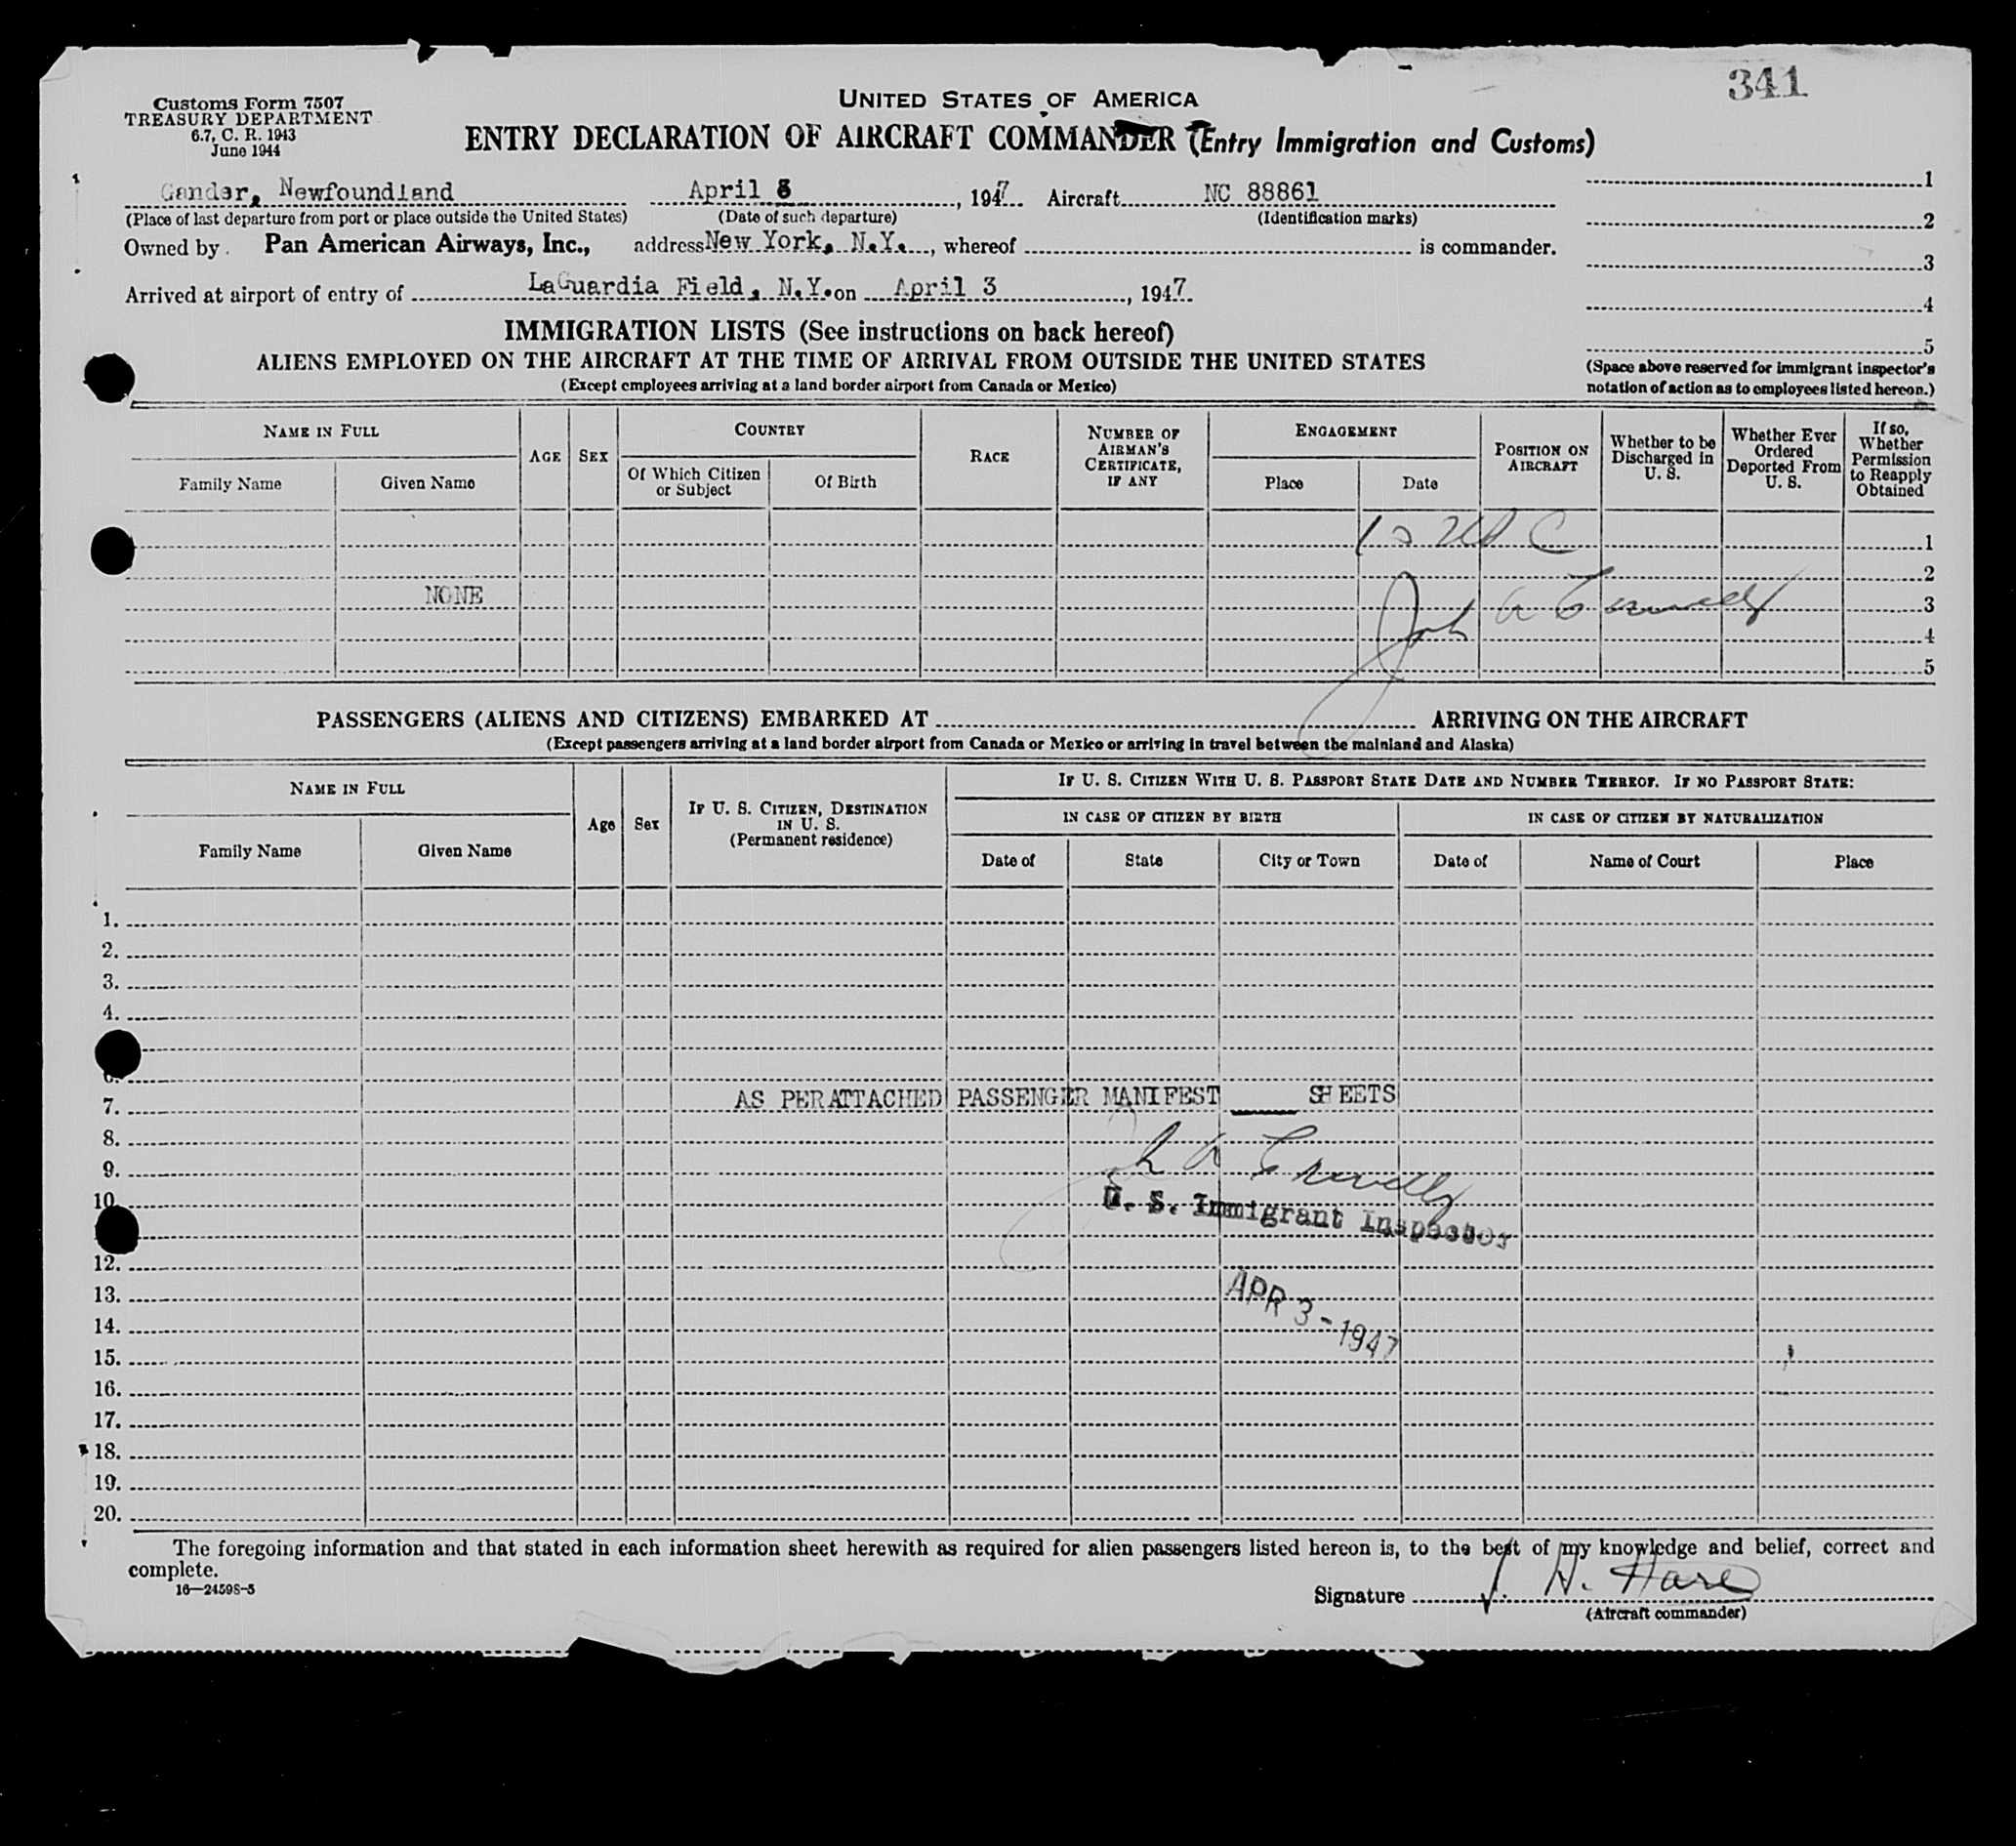 341
Customs Form 7507
TREASURY DEPARTMENT
6.7, C. R. 1943
June 1944
UNITED STATES OF AMERICA
ENTRY DECLARATION OF AIRCRAFT COMMANDER (Entry Immigration and Customs)
Gander, Newfoundland April 3, 1947 Aircraft NC 88861
(Place of last departure from port or place outside the United States) (Date of such departure) (Identification marks)
Owned by Pan American Airways, Inc., address New York, N.Y., whereof is commander.
Arrived at airport of entry of LaGuardia Field, N.Y. on April 3, 1947.
1
2
3
4
5
(Space above reserved for immigrant inspector's
notation of action as to employees listed hereon.)
IMMIGRATION LISTS (See instructions on back hereof)
ALIENS EMPLOYED ON THE AIRCRAFT AT THE TIME OF ARRIVAL FROM OUTSIDE THE UNITED STATES
(Except employees arriving at a land border airport from Canada or Mexico)
NAME IN FULL
Family Name Given Name
AGE
SEX
COUNTRY
Of Which Citizen or Subject
Of Birth
RACE
NUMBER OF AIRMAN'S CERTIFICATE, IF ANY
ENGAGEMENT
Place Date
POSITION ON AIRCRAFT
Whether to be Discharged in U. S.
Whether Ever Ordered Deported From U. S.
If so, Whether Permission to Reapply Obtained
1
2
NONE 3
4
5
PASSENGERS (ALIENS AND CITIZENS) EMBARKED AT ARRIVING ON THE AIRCRAFT
(Except passengers arriving at a land border airport from Canada or Mexico or arriving in travel between the mainland and Alaska)
NAME IN FULL
Family Name Given Name
Age
Sex
IF U. S. CITIZEN, DESTINATION IN U. S.
(Permanent residence)
IF U. S. CITIZEN WITH U. S. PASSPORT STATE DATE AND NUMBER THEREOF. IF NO PASSPORT STATE:
IN CASE OF CITIZEN BY BIRTH IN CASE OF CITIZEN BY NATURALIZATION
Date of State City or Town Date of Name of Court Place
1.
2.
3.
4.
6.
7. AS PER ATTACHED PASSENGER MANIFEST SHEETS
8.
9.
10. U. S. Immigrant Inspector
12.
13. APR 3-1947
14.
15.
16.
17.
18.
19.
20.
The foregoing information and that stated in each information sheet herewith as required for alien passengers listed hereon is, to the best of my knowledge and belief, correct and
complete.
16—24598-5
Signature J. H. Hare
(Aircraft commander)